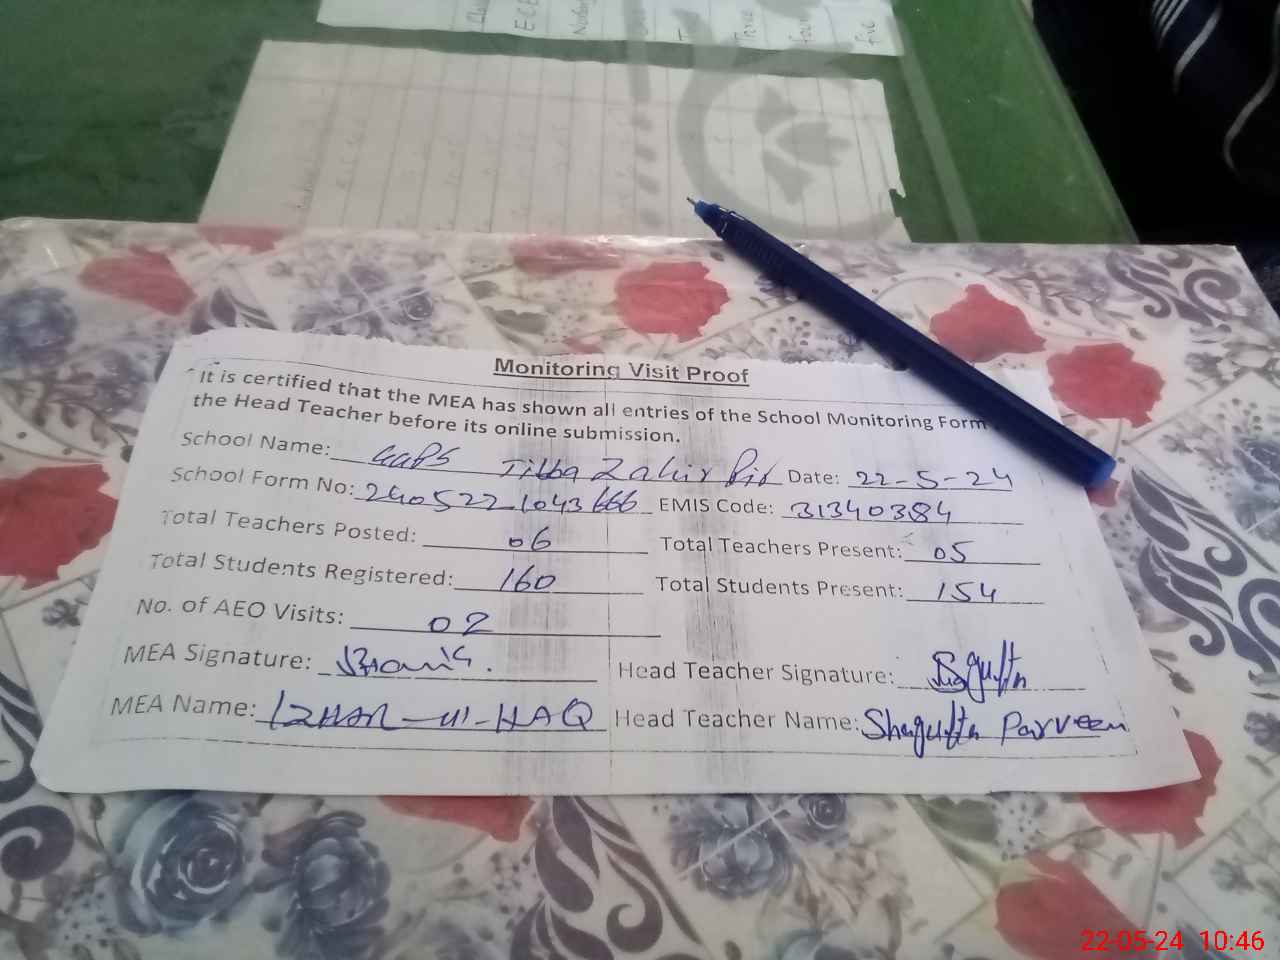 ECE
Three
four
five
Monitoring Visit Proof
It is certified that the MEA has shown all entries of the School Monitoring Form
the Head Teacher before its online submission.
School Name: GGPS Tibba Zahir Pir Date: 22-5-24
School Form No: 240522 1043666 EMIS Code: 31340384
Total Teachers Posted: 06 Total Teachers Present: 05
Total Students Registered: 160 Total Students Present: 154
No. of AEO Visits: 02
MEA Signature:
Head Teacher Signature: Shagufta
MEA Name: IZHAR-ul-HAQ Head Teacher Name: Shagufta Parveen
22-05-24 10:46